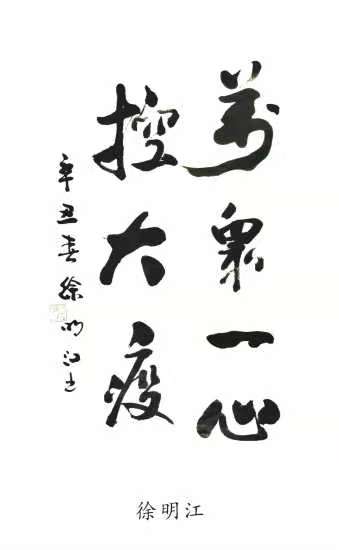 萬眾一心
控大疫
辛丑春徐明江書
徐明江